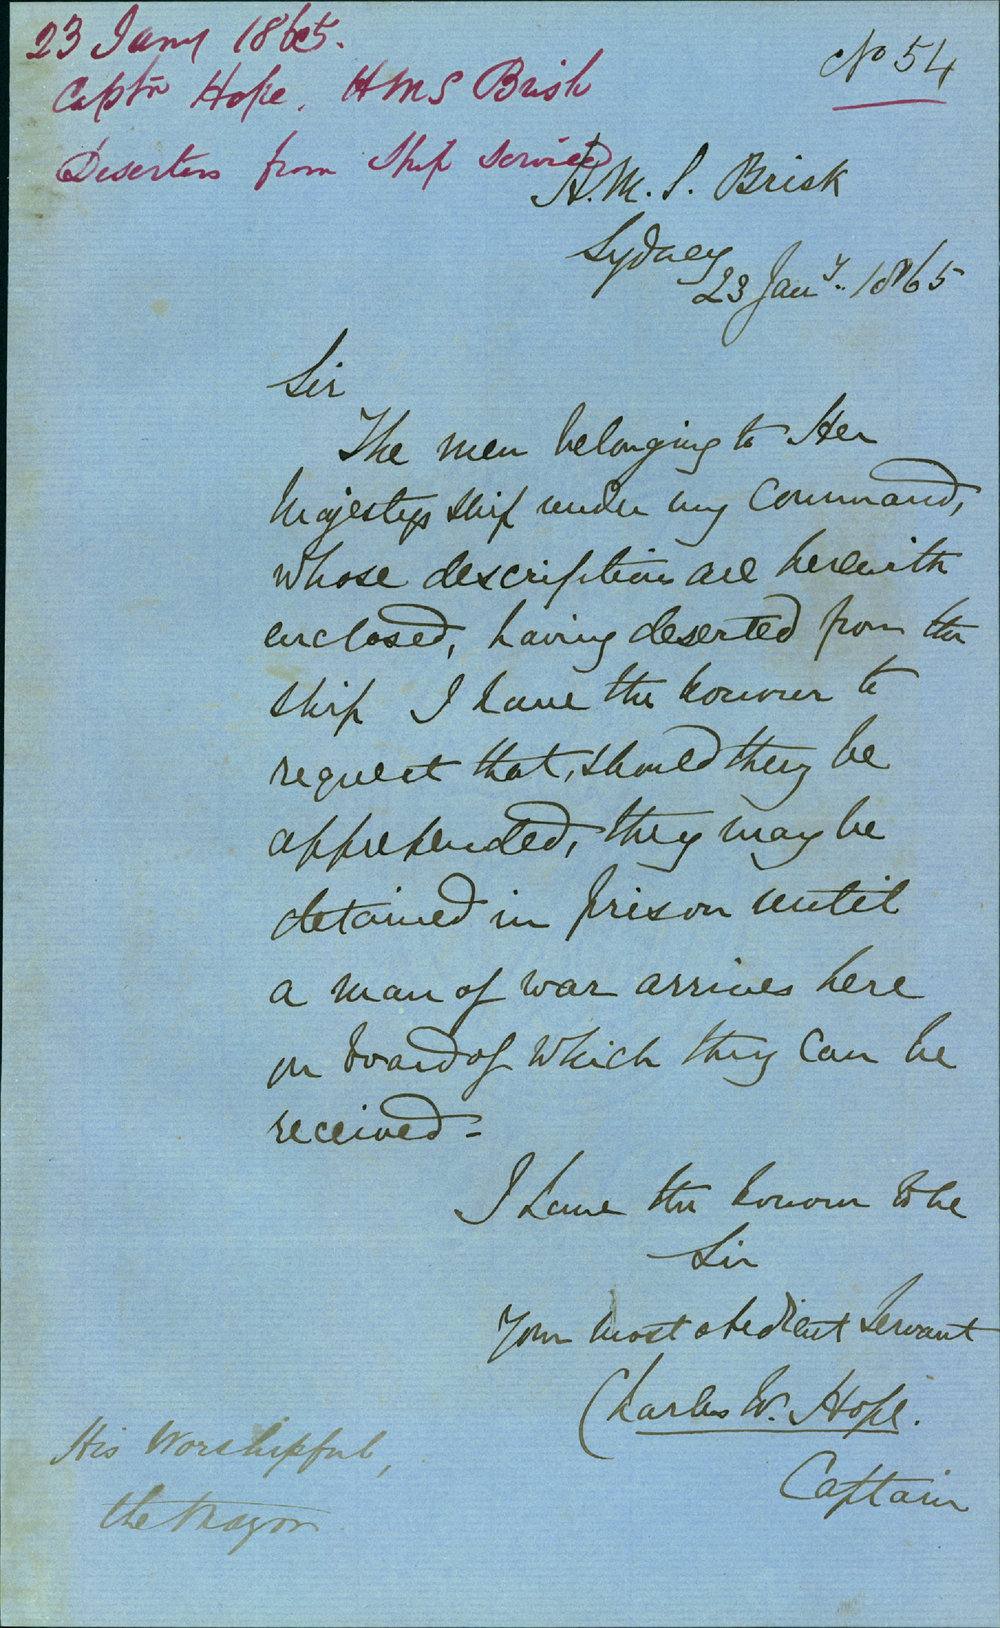 23 Jany 1865.
Captn Hope. HMS Brisk
Deserters from Ship Service
No 54
H.M.S. Brisk
Sydney
23 Jany. 1865
Sir
The men belonging to Her
Majestys Ship under my Command,
whose descriptions are herewith
enclosed, having deserted from the
Ship I have the honour to
request that, should they be
apprehended, they may be
detained in prison until
a man of war arrives here
on board of which they can be
received -
I have the honour to be
Sir
Your most obedient Servant
Charles W. Hope.
Captain
His Worshipful,
the Mayor